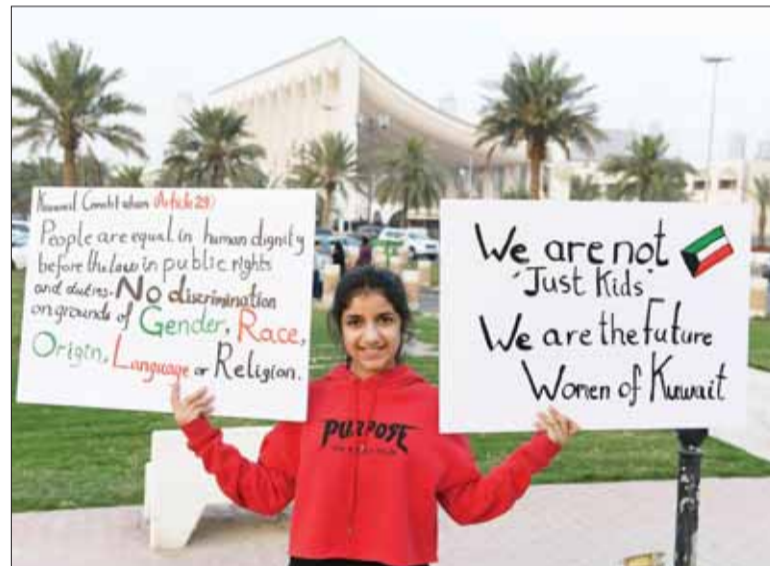 Kuwait Constitution (Article 29)
People are equal in human dignity
before the law in public rights
and duties. No discrimination
on grounds of Gender, Race,
Origin, Language or Religion.
We are not
"Just Kids"
We are the future
Women of Kuwait
PURPOSE